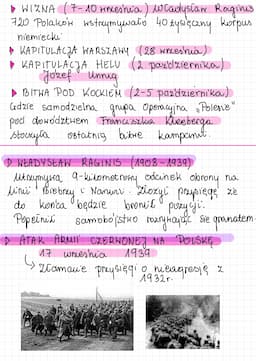 ▶ WIZNA (7-10 września) Władysław Raginis
720 Polaków wstrzymywało 40 tysięczny korpus
niemiecki
▶ KAPITULACJA WARSZAWY (28 września)
▶ KAPITULACJA HELU (2 października)
Józef Unrug
▶ BITWA POD KOCKIEM (2-5 października)
Gdzie samodzielna grupa Operacyjna „Polesie"
pod dowództwem Franciszka Kleeberga
stoczyła ostatnią bitwę kampanii.
▷ WŁADYSŁAW RAGINIS (1908-1939)
Utrzymywał 9-kilometrowy odcinek obrony na
linii Biebrzy i Narwi. Złożył przysięgę że
do końca będzie bronił pozycji.
Popełnił samobójstwo rozrywając się granatem.
▷ ATAK ARMII CZERWONEJ NA POLSKĘ
17 września 1939
↳ Złamanie przysięgi o nieagresję z
1932r.